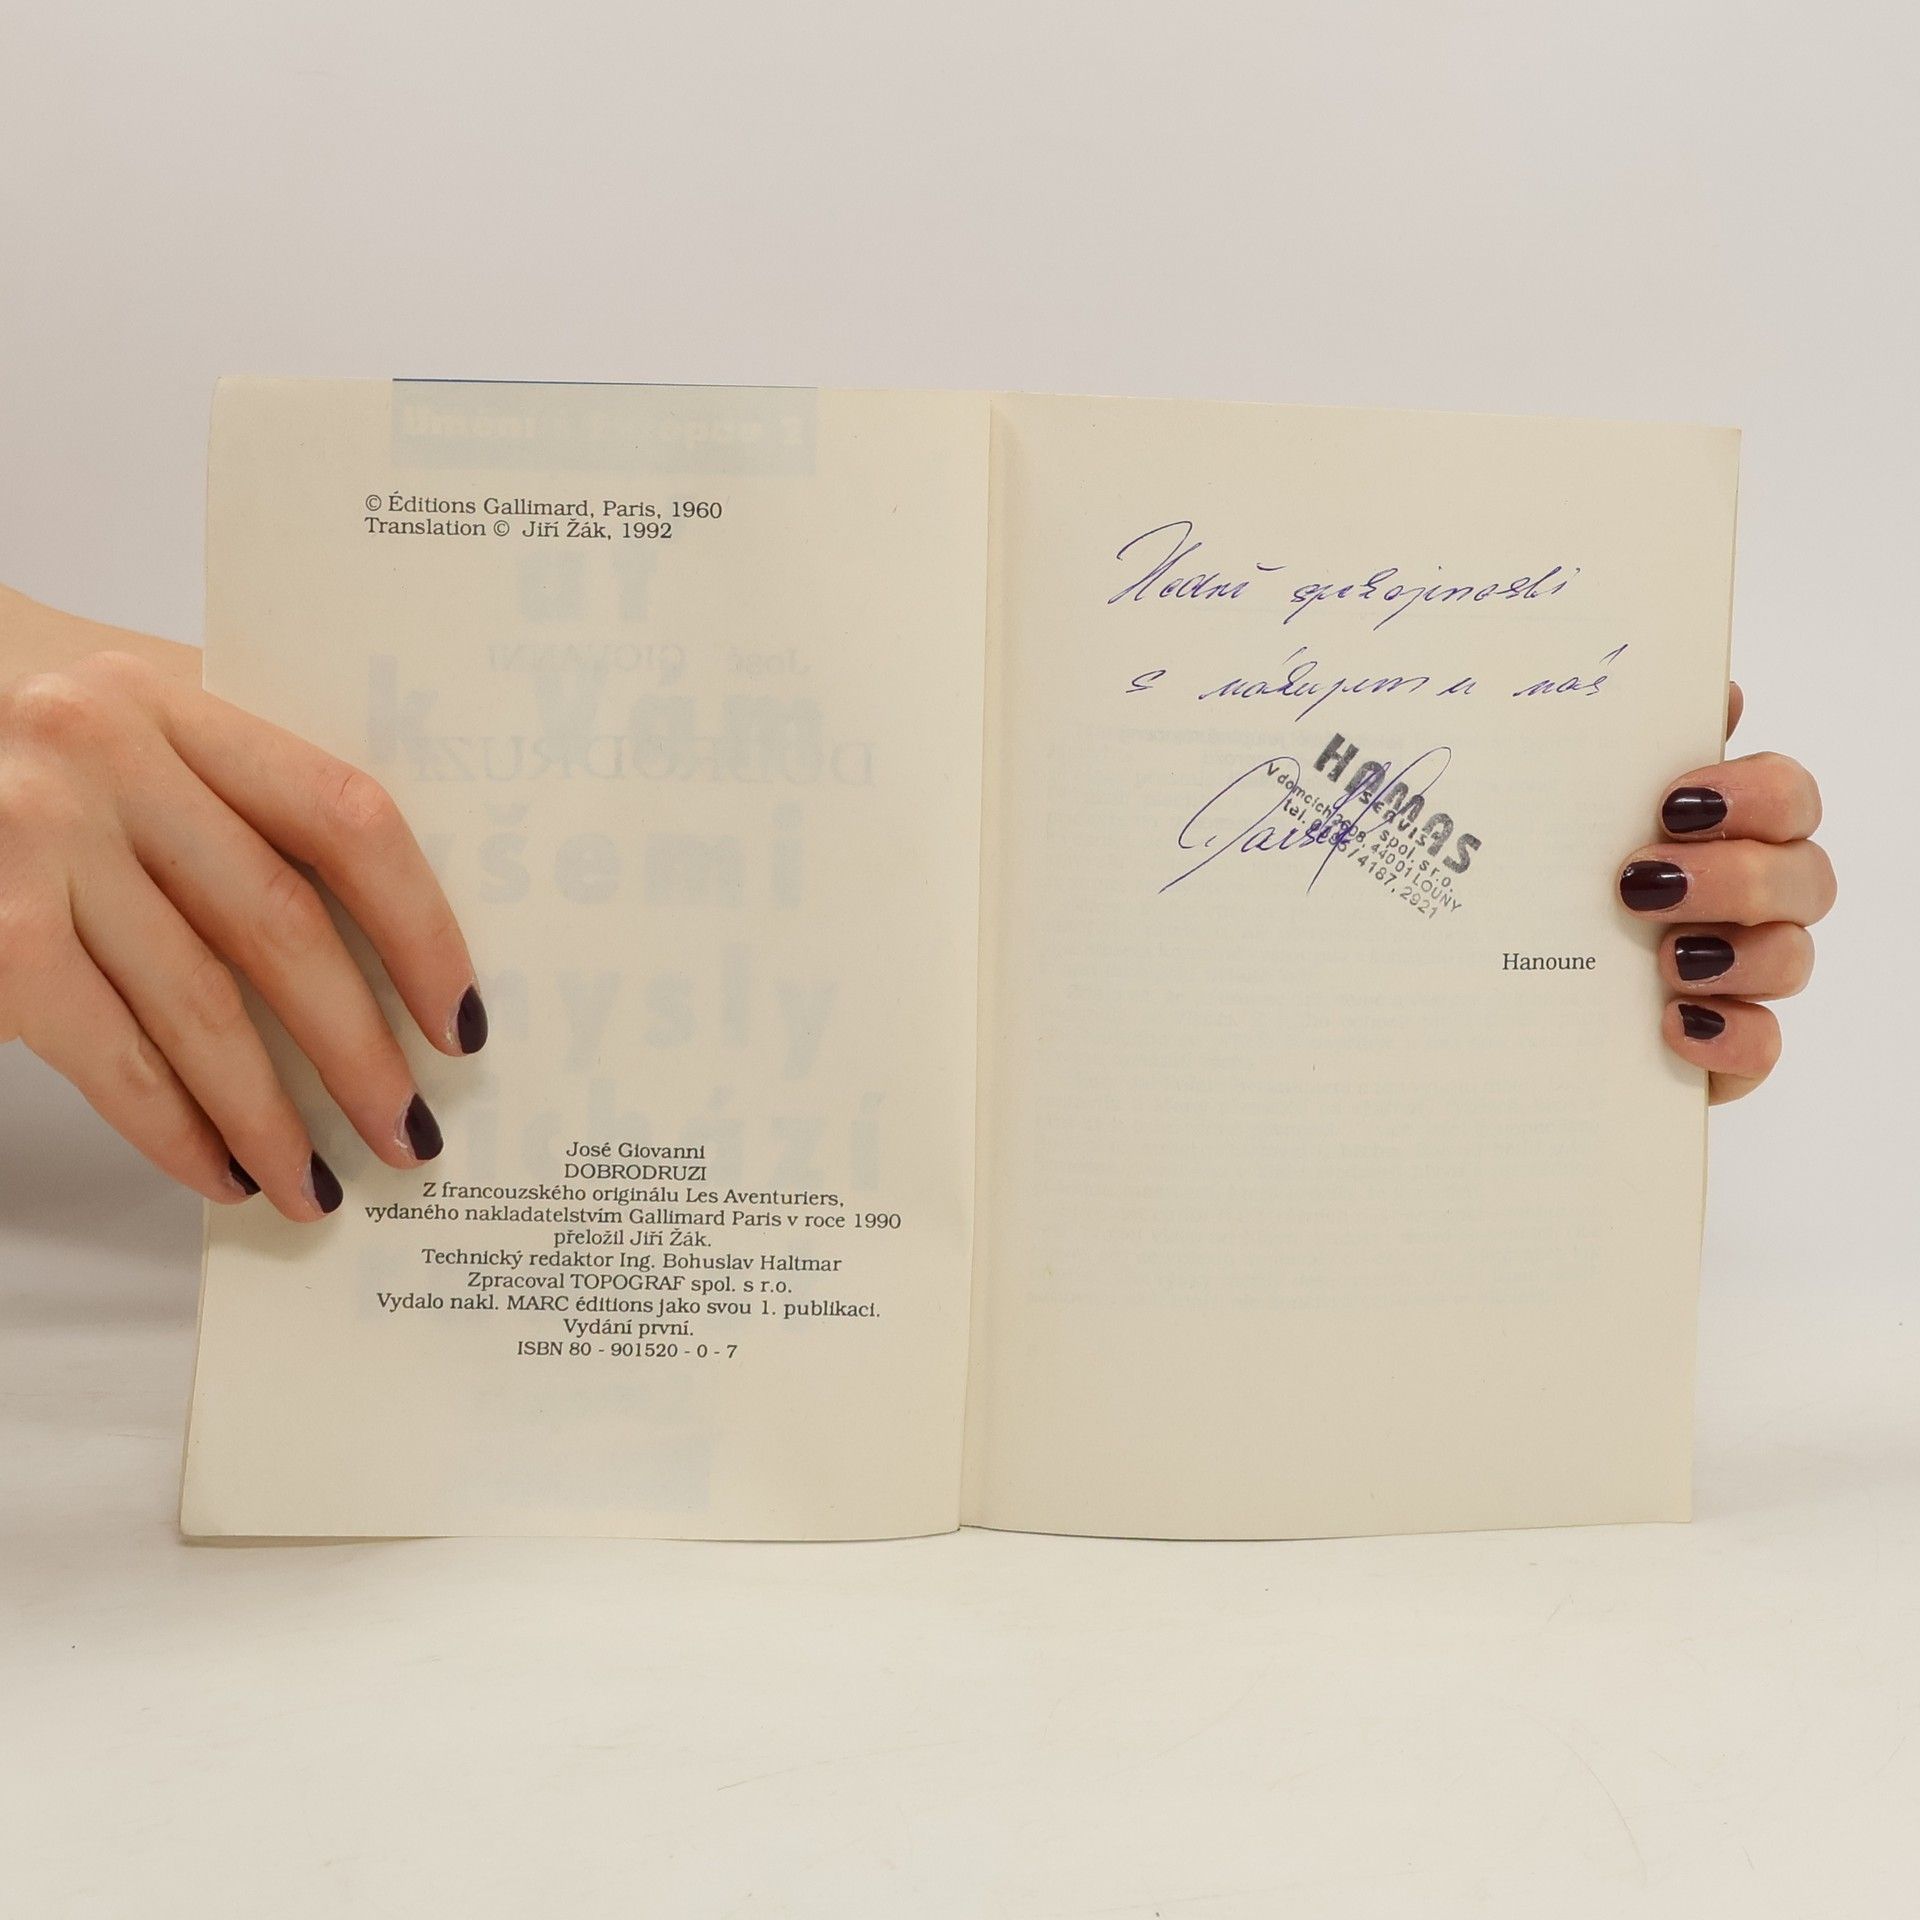 © Éditions Gallimard, Paris, 1960
Translation © Jiří Žák, 1992
José Giovanni
DOBRODRUZI
Z francouzského originálu Les Aventuriers,
vydaného nakladatelstvím Gallimard Paris v roce 1990
přeložil Jiří Žák.
Technický redaktor Ing. Bohuslav Haltmar
Zpracoval TOPOGRAF spol. s r.o.
Vydalo nakl. MARC éditions jako svou 1. publikaci.
Vydání první.
ISBN 80 - 901520 - 0 - 7
Hodně spokojenosti
s nákupem u nás
HAMAS
SERVIS spol. s r.o.
V domcích 2608, 440 01 LOUNY
tel. /4187, 2921
Hanoune